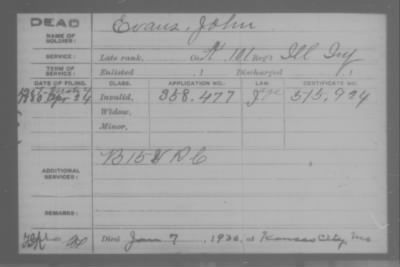 DEAD
NAME OF SOLDIER: Evans, John
SERVICE: Late rank, Co. H, 101 Reg't Ill Inf
TERM OF SERVICE: Enlisted , 1 Discharged , 1
DATE OF FILING. CLASS. APPLICATION NO. LAW. CERTIFICATE NO.
1880 Apr 24 Invalid, 358,477 515,924
Widow,
Minor,
ADDITIONAL SERVICES: B 15 V R C
REMARKS:
Died Jan 7, 1920, at Kansas City, Mo